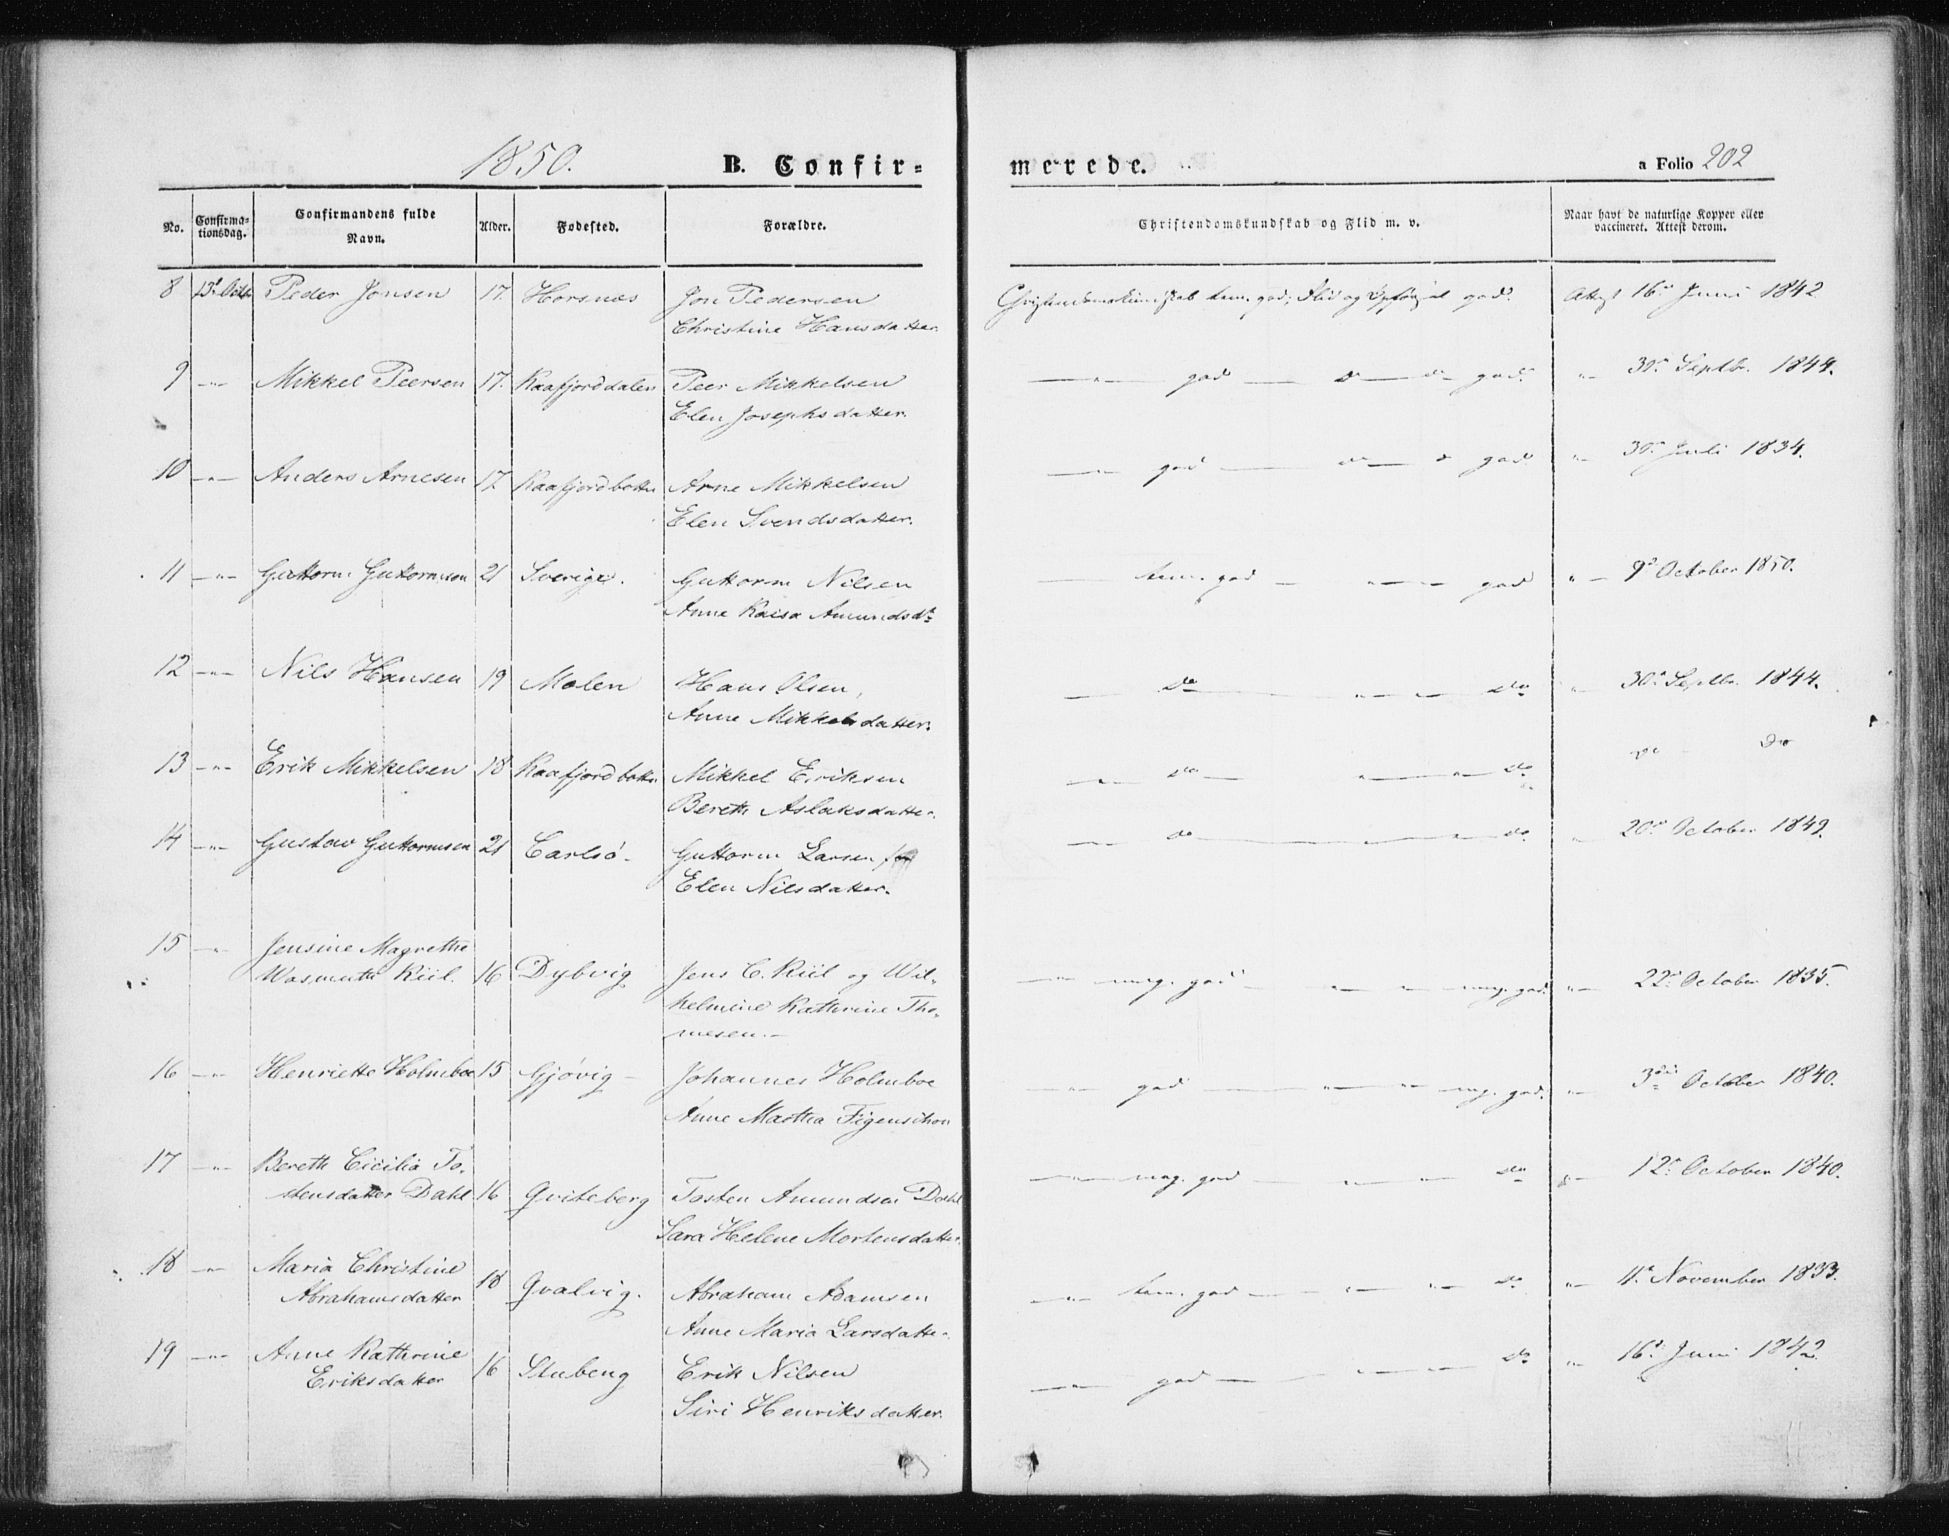 1850.
B. Confir-
merede.
a Folio 202
No.
Confirma-
tionsdag.
Confirmandens fulde
Navn.
Alder.
Fødested.
Forældre.
Christendomskundskab og Flid m. v.
Naar havt de naturlige Kopper eller
vaccineret. Attest derom.
8 13de Octbr Peder Jonsen 17. Horsnæs Jon Pedersen Christendomskundskab tem. god; Flid og Opførsel god. Attest 16de Juni 1842
Christine Hansdatter.
9 —"— Mikkel Peersen 17. Kaafjorddalen Peer Mikkelsen —"— god — do — do god. " 30te Septbr. 1844.
Elen Josephsdatter.
10 —"— Anders Arnesen 17 Kaafjordbotten Arne Mikkelsen —"— god — god "— 30te Juli 1834.
Elen Svendsdatter.
11 —"— Guttorm Guttormsen 21 Sverige. Guttorm Nilsen — tem. god — " — " — god "— 9de October 1850.
Anne Kaisa Amundsdr.
12 —"— Nils Hansen 19 Molen Hans Olsen, — do — " — " — do " 30te Septbr. 1844.
Anne Mikkelsdatter.
13 —"— Erik Mikkelsen 18 Kaafjordbotten Mikkel Eriksen —"— do — " — " — do do do
Bereth Aslaksdatter.
14 —"— Gustav Guttormsen 21 Carlsø. Guttorm Larsen —"— do — " — do " 20de October 1849.
Elen Nilsdatter.
15 —"— Jensine Magrethe
Wasmuth Kiil. 16 Dybvig Jens C. Kiil og Wil-
—"— meg. god — " — " — meg. god. "— 22de October 1835.
helmine Kathrine Tho-
mesen.—
16 —"— Henriette Holmboe 15 Gjøvig — Johannes Holmboe —"— god — " — " — meg. god. "— 3die October 1840.
Anne Martha Figenschou
17 —"— Bereth Cicilia To-
stensdatter Dahl 16 Qviteberg Tosten Amundsen Dahl —"— meg. god — " — " — do "— 12te October 1840.
Sara Helene Mortensdatter.
18 —"— Maria Christine
Abrahamsdatter 18 Qvalvig. Abraham Adamsen —"— tem. god — " — " — do "— 11te November 1833.
Anne Maria Larsdatter.
19 —"— Anne Kathrine
Eriksdatter 16 Stubeng Erik Nilsen —"— god — " — " — do "— 16de Juni 1842.
Siri Henriksdatter.